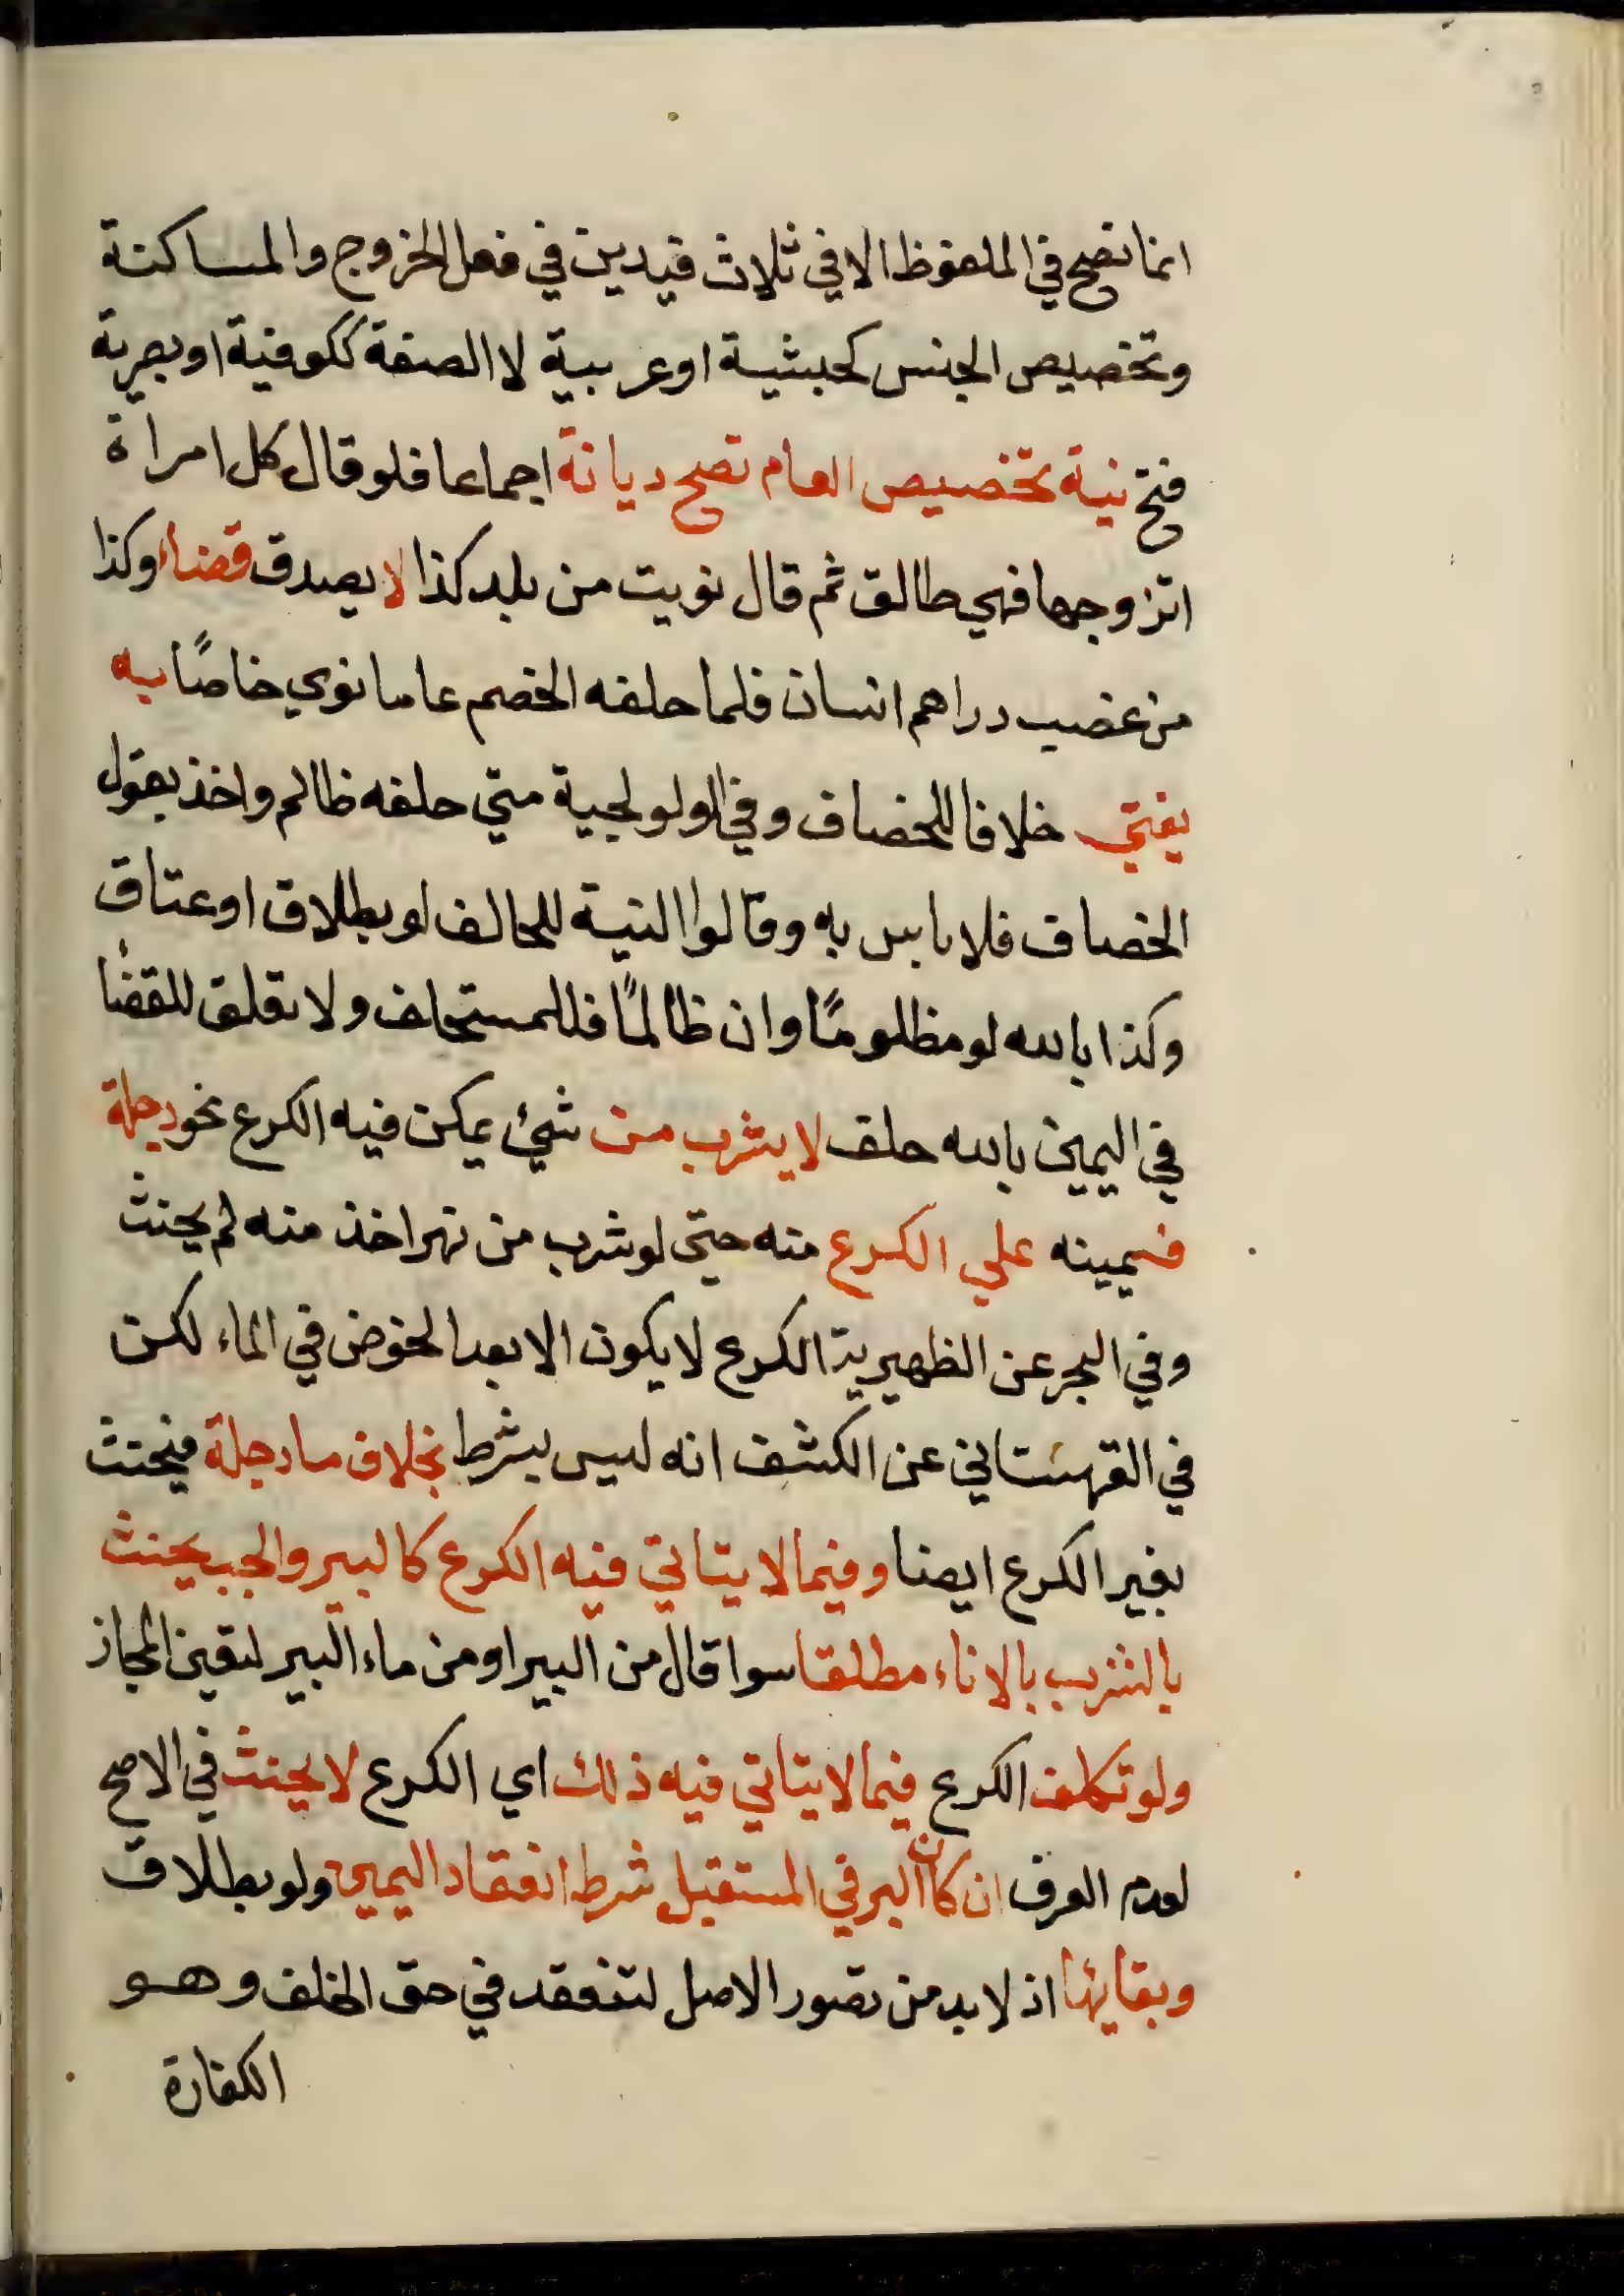 انما تصح في الملفوظ الا في ثلاث فيدين في فعل الخروج والمساكنة
وتخصيص الجنس كحبشية او عربية لا الصفة ككوفية او بصرية
فتح نية تخصيص العام تصح ديانة اجماعا فلو قال كل امراة
اتزوجها فهي طالق ثم قال نويت من بلد كذا لا يصدق قضاء وكذا
من غصب دراهم انسان فلما حلفه الخصم عاما نوي خاصًا به
يفتي خلافا للخصاف وفي الولولجية متي حلفه ظالم واخذ بقول
الخصاف فلا باس به وقالوا النية للحالف لو بطلاق او عتاق
وكذا بالله لو مظلومًا وان ظالمًا فللمستحلف ولا تعلق للقضا
في اليمين بالله حلف لا يشرب من شيء يمكن فيه الكرع نحو دجلة
فيمينه علي الكرع منه حتى لو شرب من نهر اخذ منه لم يحنث
وفي البحر عن الظهيرية الكرع لا يكون الا بعد الخوض في الماء لكن
في القهستاني عن الكشف انه ليس بشرط بخلاف ما دجلة فيحنث
بغير الكرع ايضا وفيما لا يتاتي فيه الكرع كالبير والجب يحنث
بالشرب بالاناء مطلقا سوا قال من البير او من ماء البير لتعين المجاز
ولو تكلف الكرع فيما لا يتاتي فيه ذلك اي الكرع لا يحنث في الاصح
لعدم العرف ان كان البر في المستقبل شرط انعقاد اليمين ولو بطلاق
وبقايها اذ لا بد من تصور الاصل لتنعقد في حق الخلف وهو
الكفارة